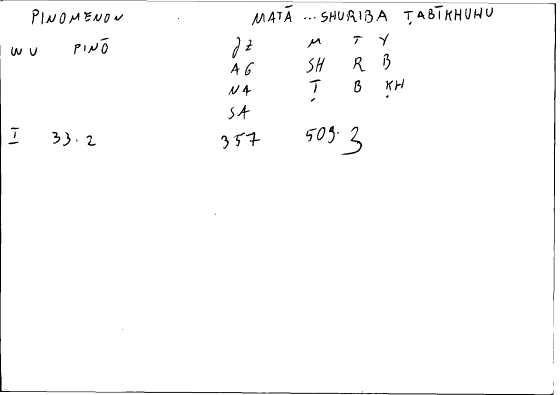 PINOMENON MATĀ ... SHURIBA ṬABĪKHUHU
WU PINŌ ȷZ M T Y
AG SH R B
NA Ṭ B ḲH
SA
I 33.2 357 509.3